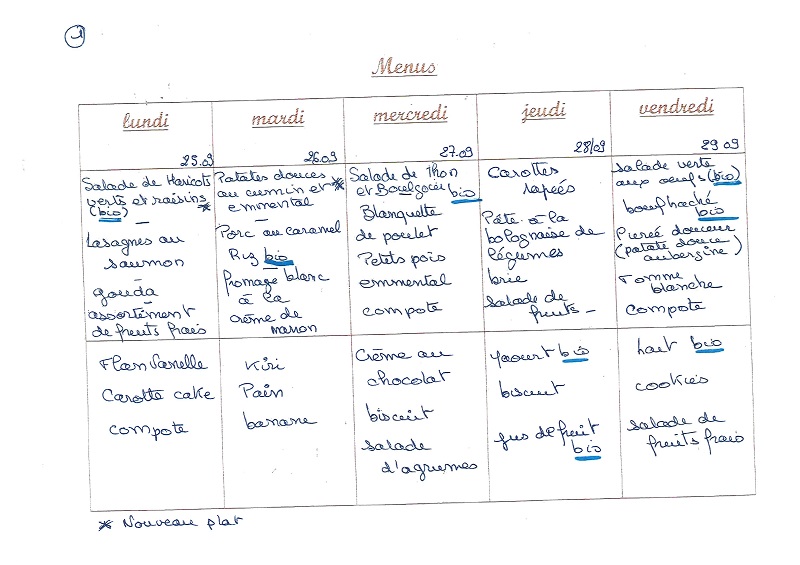 1
Menus
lundi
25.09
mardi
26.09
mercredi
27.09
jeudi
28/09
vendredi
29 09
Salade de Haricots
verts et raisins *
(bio)
Lasagnes au
saumon
gouda
assortiment
de fruits frais
Patates douces
au cumin et *
emmental
Porc au caramel
Riz bio
fromage blanc
à la
crème de
marron
Salade de Thon
et Boulgour bio
Blanquette
de poulet
Petits pois
emmental
compote
Carottes
rapées
Pâte à la
bolognaise de
légumes
brie
salade de
fruits
salade verte
aux oeufs (bio)
boeuf haché
bio
Pureé douceur
(patate douce
aubergine)
Tomme
blanche
compote
Flan Vanelle
Carotte cake
compote
Kiri
Pain
banane
Crème au
chocolat
biscuit
salade
d'agrumes
yaourt bio
biscuit
jus de fruit
bio
lait bio
cookies
salade de
fruits frais
* Nouveau plat